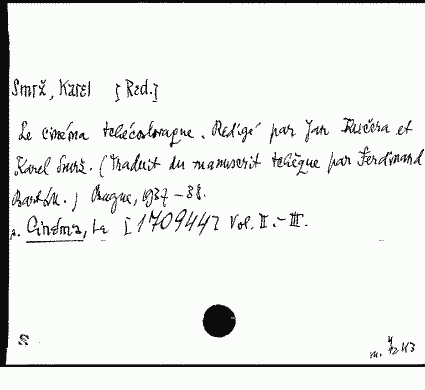 Smrž, Karel [Red.]
Le cinéma tchécoslovaque. Rédigé par Jan Kučera et
Karel Smrž. (Traduit du manuscrit tchèque par Ferdinand
Prague, 1937-38.
Cinéma, Le [170944] Vol. II.-III.